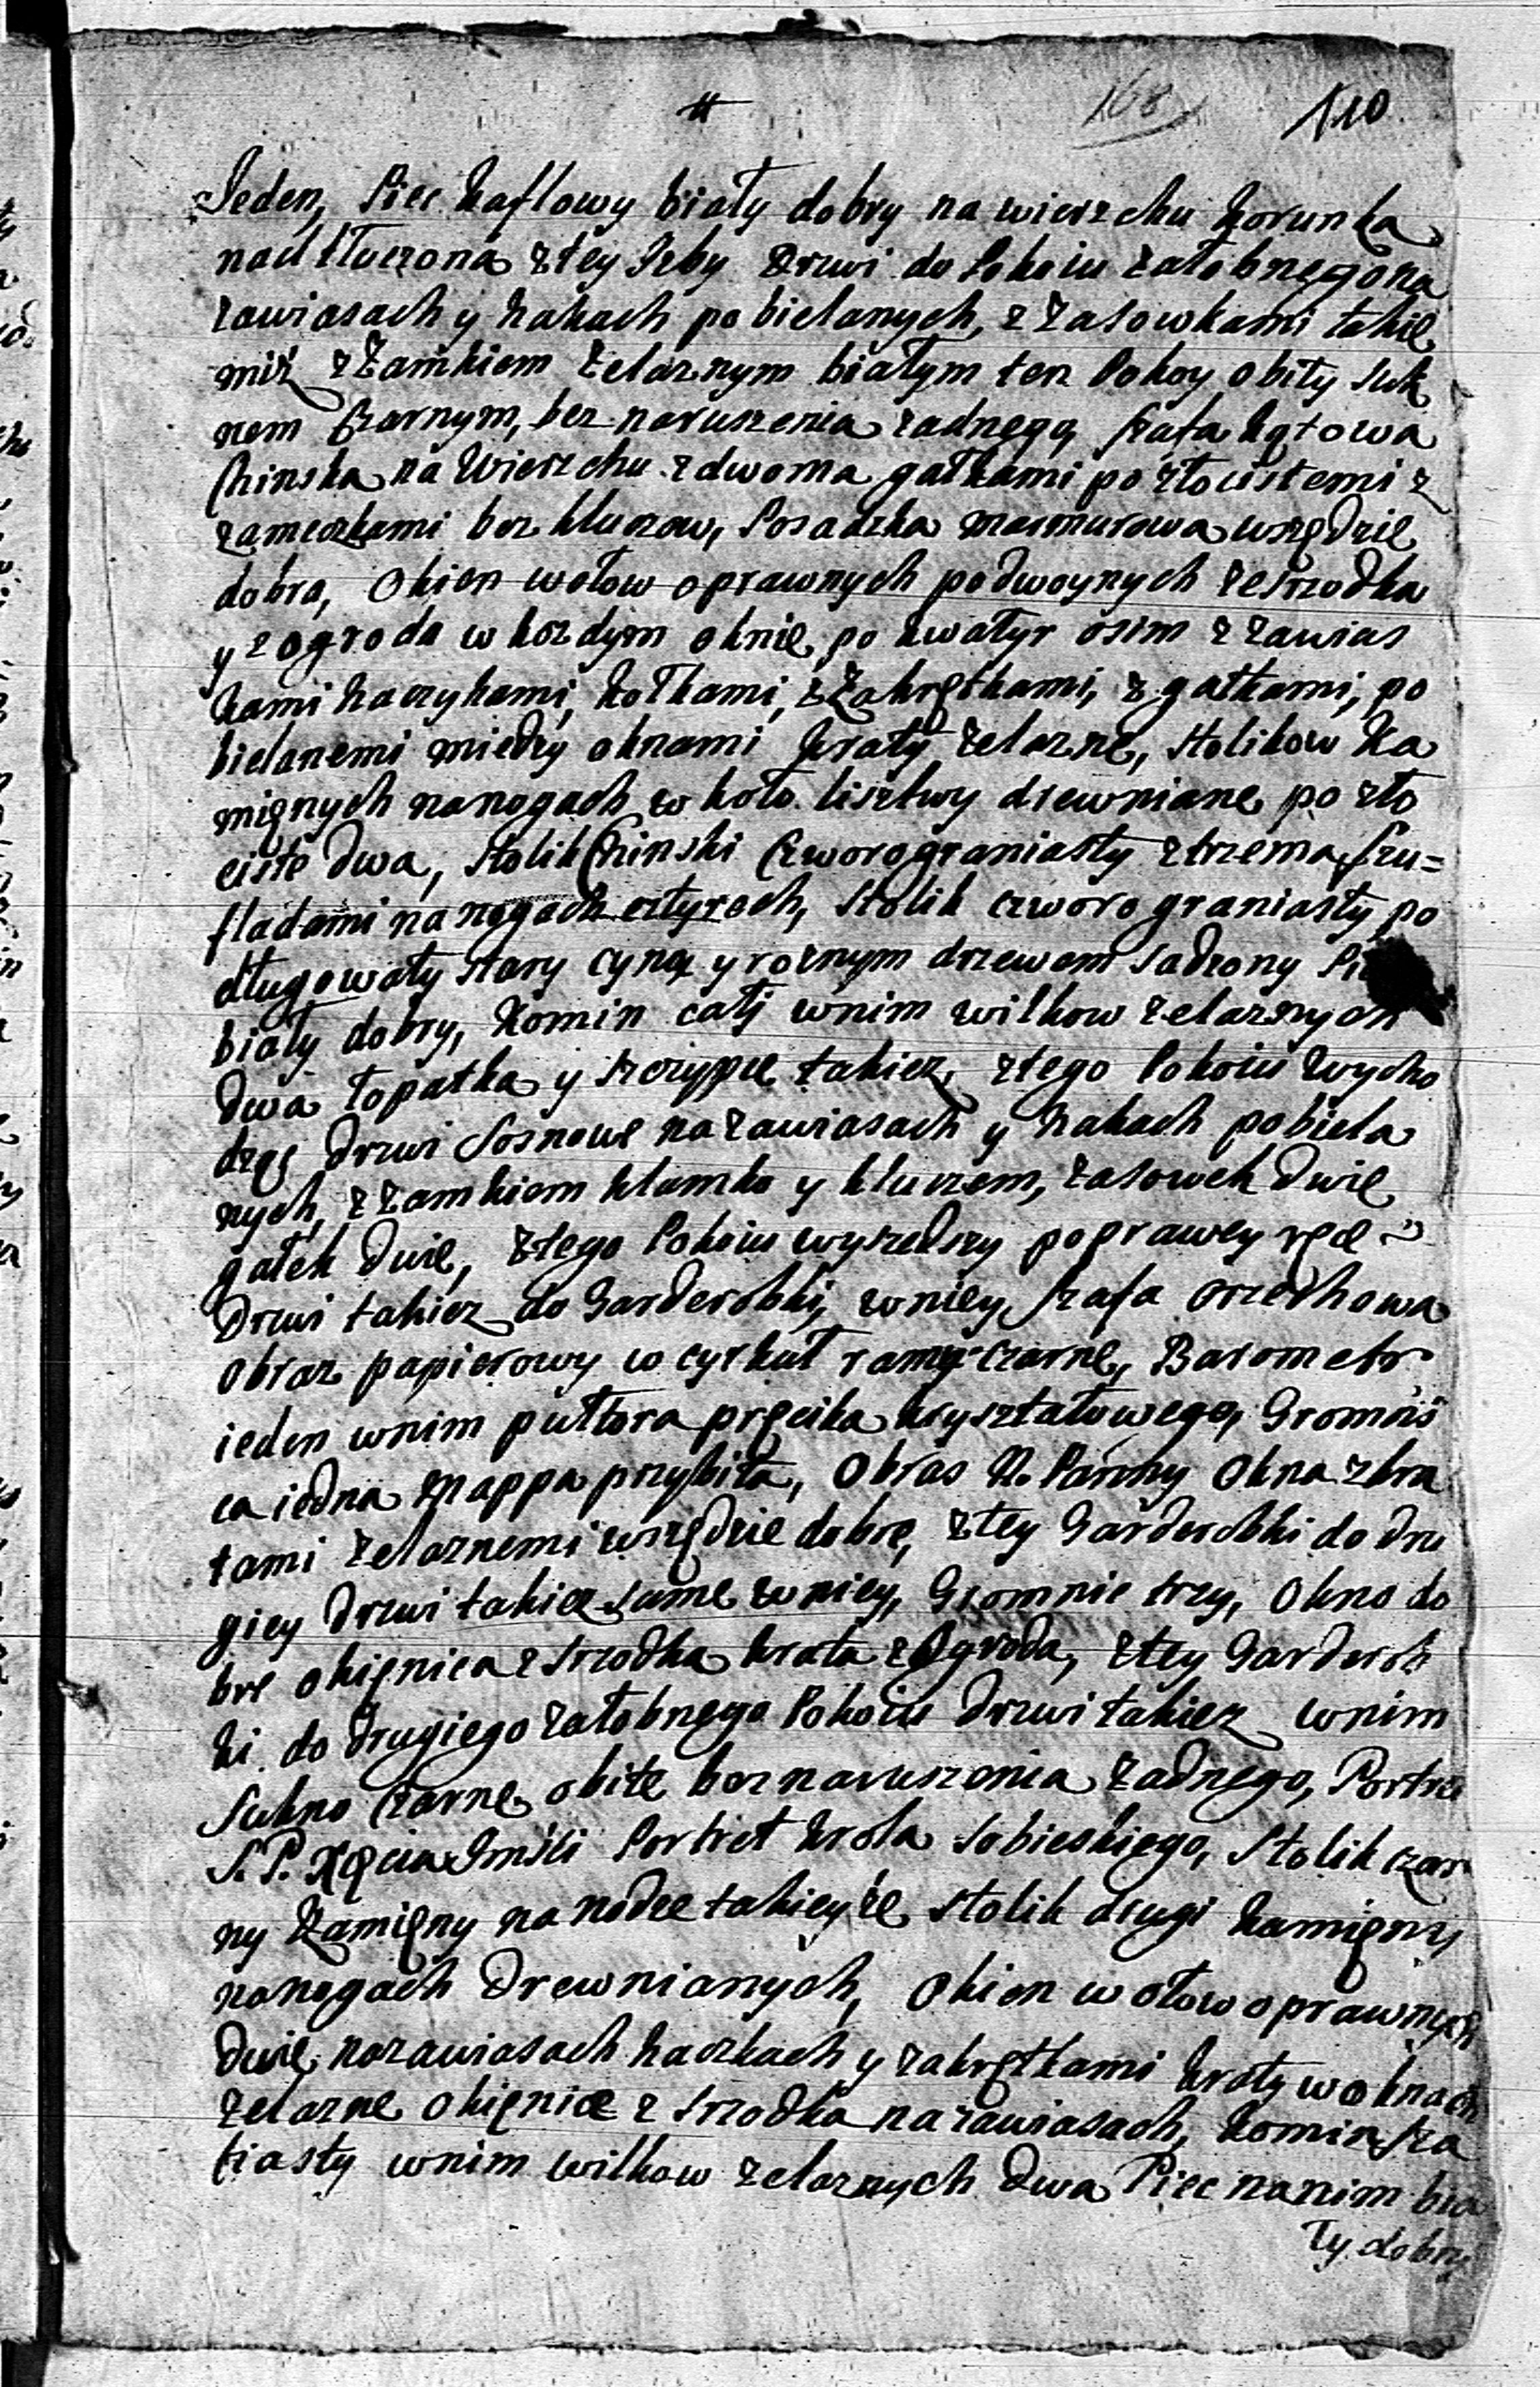 #
168
110
Jeden, Piec Kaflowy biały dobry na wierzchu Korunka
nadtłuczona z tey Izby Drzwi do Pokoiu Załobnęgo na
zawiasach y hakach pobielanych, z Zasowkami takie
miż z Zamkiem Zelaznym białym ten Pokoy obity suk
nem Czarnym, bez naruszenia zadnęgo, szafa kątowa
Chinska na Wierzchu z dwoma gałkami pozłocistemi z
zameczkami bez kluczow, Posadzka marmurowa wszędzie
dobra, Okien wołow oprawnych podwoynych ze srzodka
y z ogroda w kozdym oknie po kwatyr osim z zawias
kami haczykami, kołkami, z Zakrętkami, z gałkami, po
bielanemi między oknami kraty zelazne, stolikow Ka
mięnych na nogach w koło lisztwy drewniane po zło
ciste dwa, stolik Chinski Czworograniasty z trzema szu=
fladami na nogach cztyrech, Stolik czworo graniasty po
długowaty stary cyną y roznym drzewem sadzony
biały dobry, Komin cały w nim wilkow zelaznych
dwa łopatka y szczypce takiez, z tego Pokoiu wycho
dząc drzwi sosnowe na zawiasach y hakach pobiela
nych, z Zamkiem klamko y kluczem, zasowek dwie
gałek dwie, z tego Pokoiu wyszedszy po prawey ręce
Drzwi takiez do Garderobki, w niey szafa orzechowa
Obraz papierowy w cyrkuł ramy czarne, Barometr
ieden w nim pułtora pręcika krysztatowego, Gromni
ca iedna Mappa przybita, Obras N. Panny Okna z kra
tami zelaznemi wszędzie dobre, z tey Garderobki do dru
giey drzwi takiez same w niey, Gromnic trzy, Okno do
bre okięnica z srzodka krata z Ogroda, z tey Garderob
ki do drugiego załobnego Pokoiu drzwi takiez w nim
Sukno Czarne obite bez naruszenia zadnego, Portret
S. P. Xięcia Imści Portret Krola Sobieskiego, Stolik czar
ny Kamięny na nodze takieyże stolik drugi kamięny
na nogach drewnianych, Okien w ołow oprawnych
dwie na zawiasach haczkach y zakrętkami kraty w oknach
zelazne okięnice z srzodka na zawiasach, komin sza
fiasty w nim wilkow zelaznych dwa Piec na nim bia
ły dobry